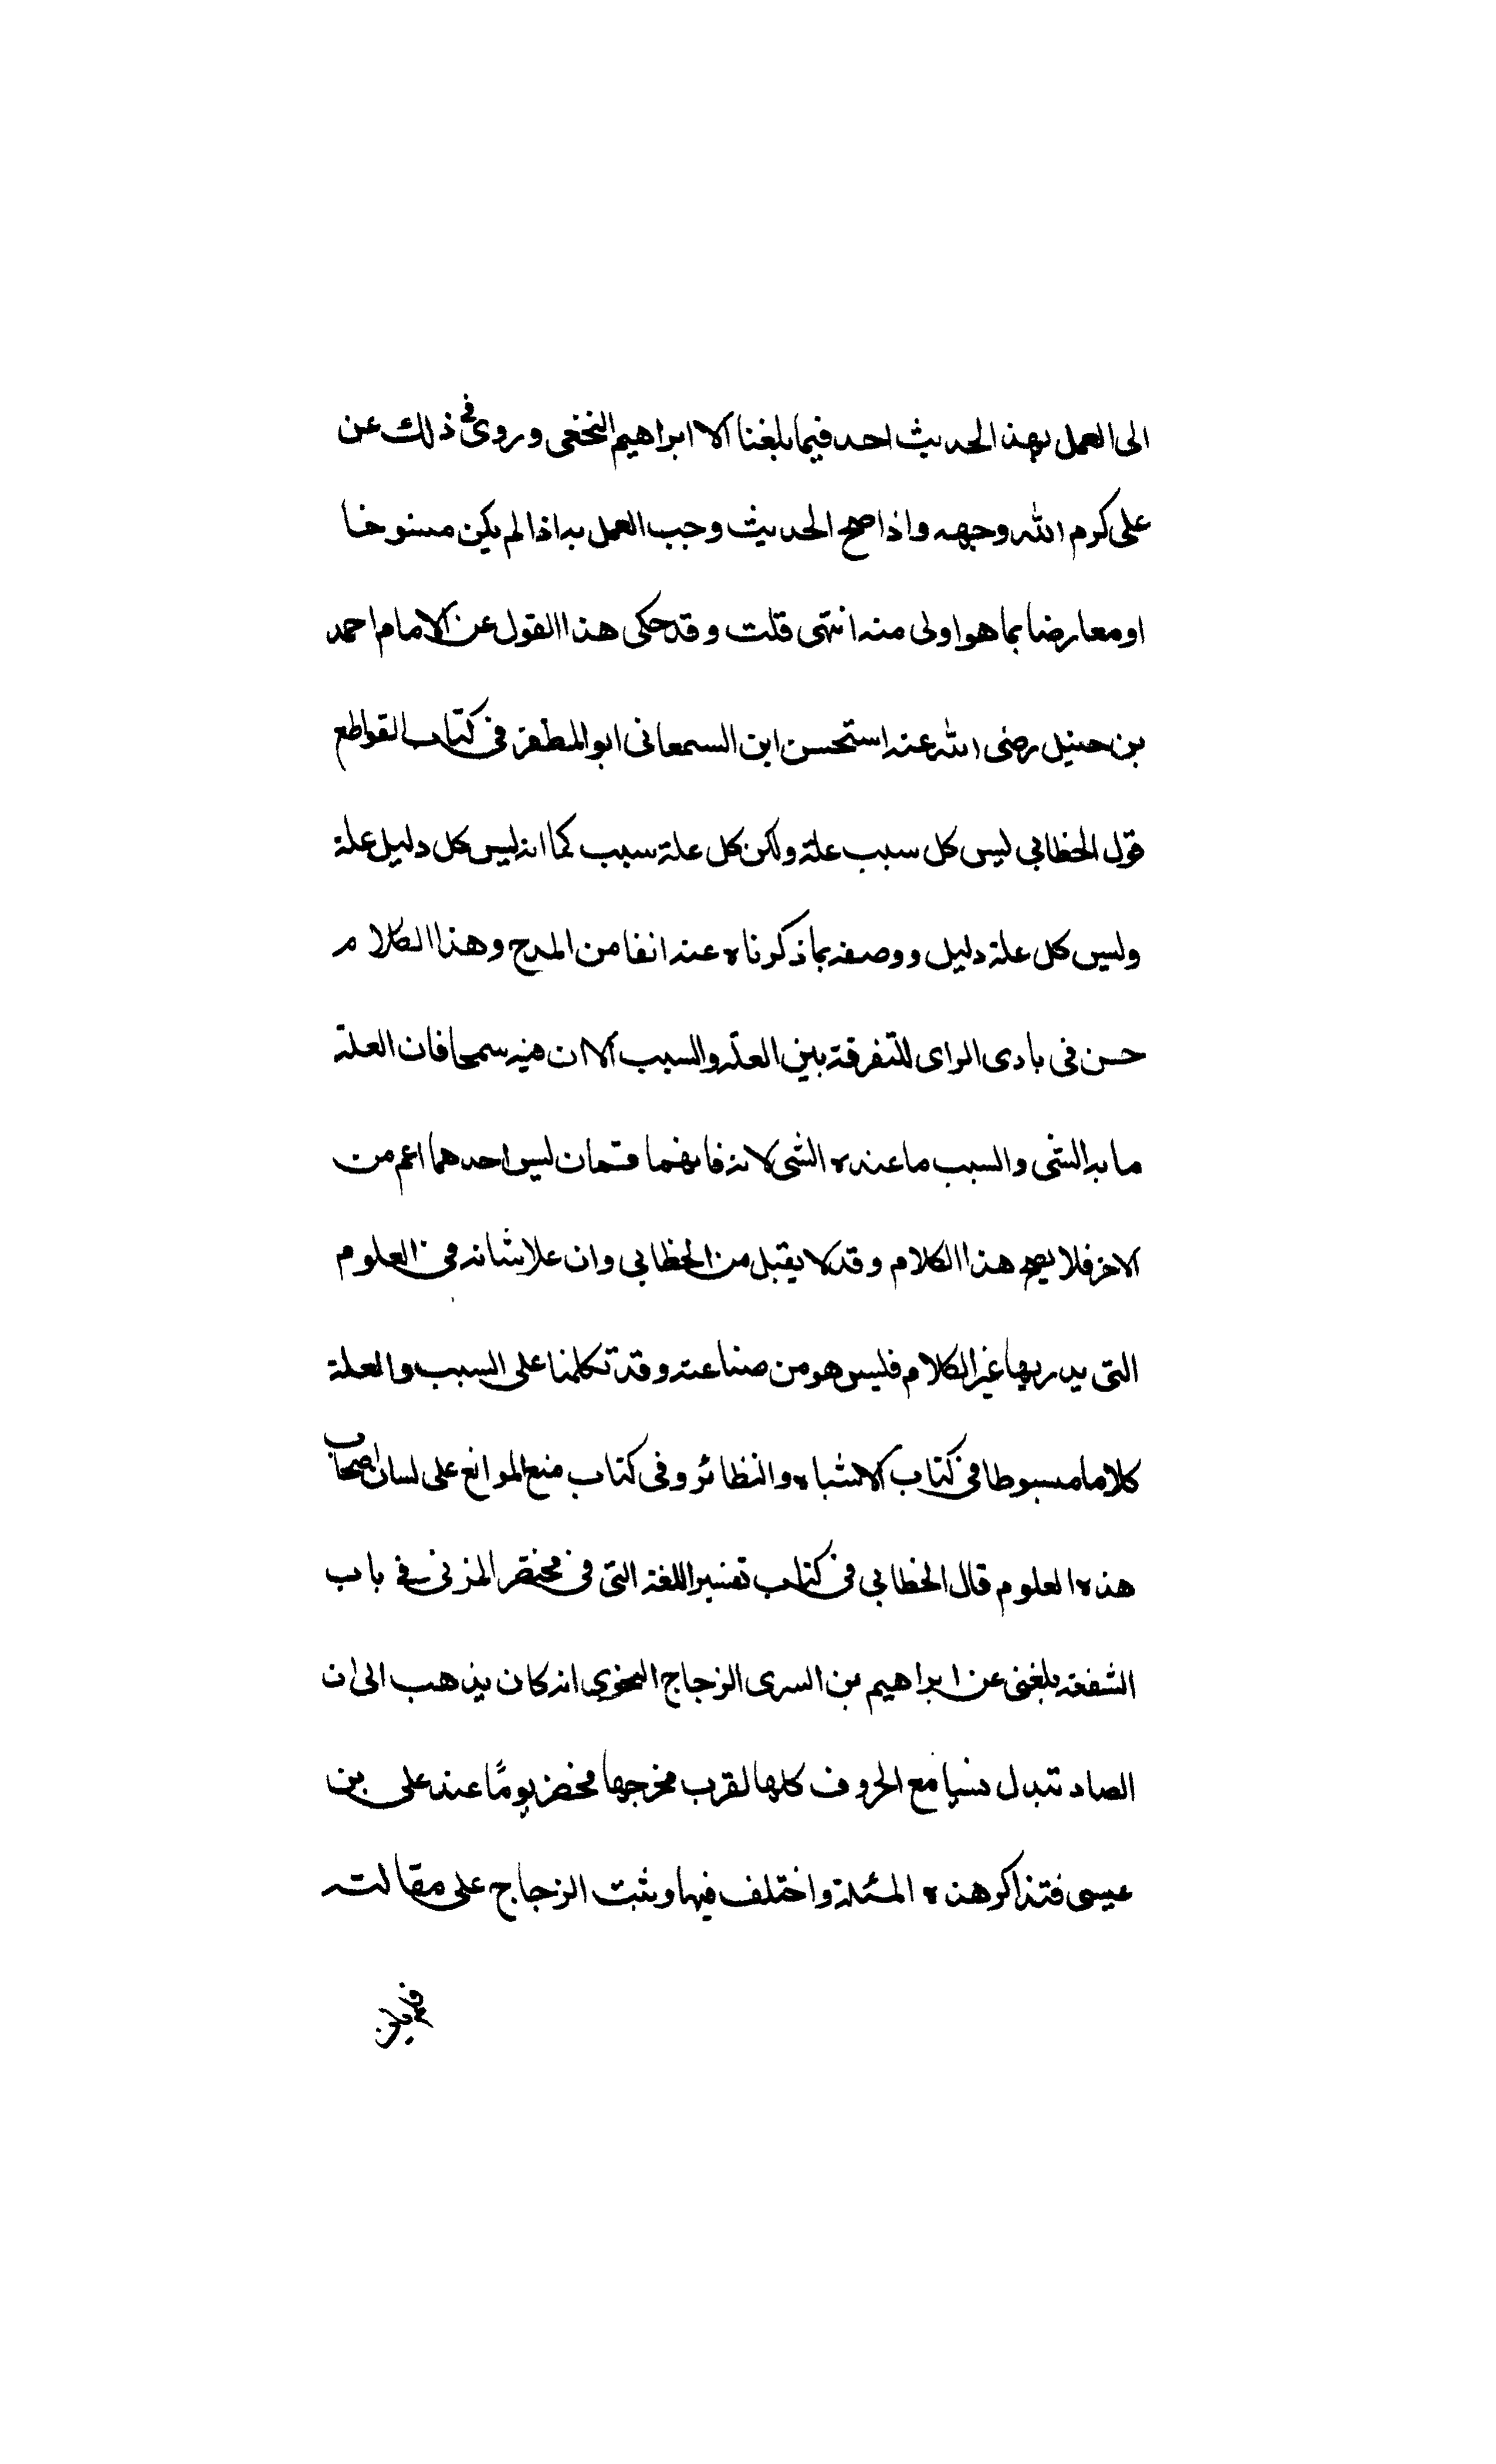 الى العمل بهذا الحديث احد فيما بلغنا الا ابراهيم النخعى وروى فى ذلك عن
على كرم الله وجهه واذا صح الحديث وجب العمل به اذا لم يكن منسوخا
او معارضا بما هو اولى منه انتهى قلت وقد حكى هذا القول عن الامام احمد
بن حنبل رضى الله عنه استحسن ابن السمعانى ابو المظفر فى كتاب القواطع
قول الخطابى ليس كل سبب علة ولكن كل علة سبب كما انه ليس كل دليل علة
وليس كل علة دليل ووصفه بما ذكرناه عنه انفا من المدح وهذا الكلام
حسن فى بادى الراى للتفرقة بين العلة والسبب الا ان فيه سمحا فان العلة
ما به الشى والسبب ما عنده الشى لا به فانهما قسمان ليس احدهما اعم من
الاخر فلا يصح هذا الكلام وقد لا يقبل من الخطابى وان علا شانه فى العلوم
التى يدريها غير الكلام فليس هو من صناعته وقد تكلمنا على السبب والعلة
كلاما مبسوطا فى كتاب الاشباه والنظائر وفى كتاب منع الموانع على لسان اصحاب
هذه العلوم قال الخطابى فى كتاب تفسير اللغة التى فى مختصر المزنى فى باب
الشفعة بلغنى عن ابراهيم بن السرى الزجاج النحوى انه كان يذهب الى ان
الصاد تبدل سينا مع الحروف كلها لقرب مخرجها فحضر يومًا عند على بن
عيسى فتذاكر هذه المئلة واختلف فيها وثبت الزجاج على مقالته